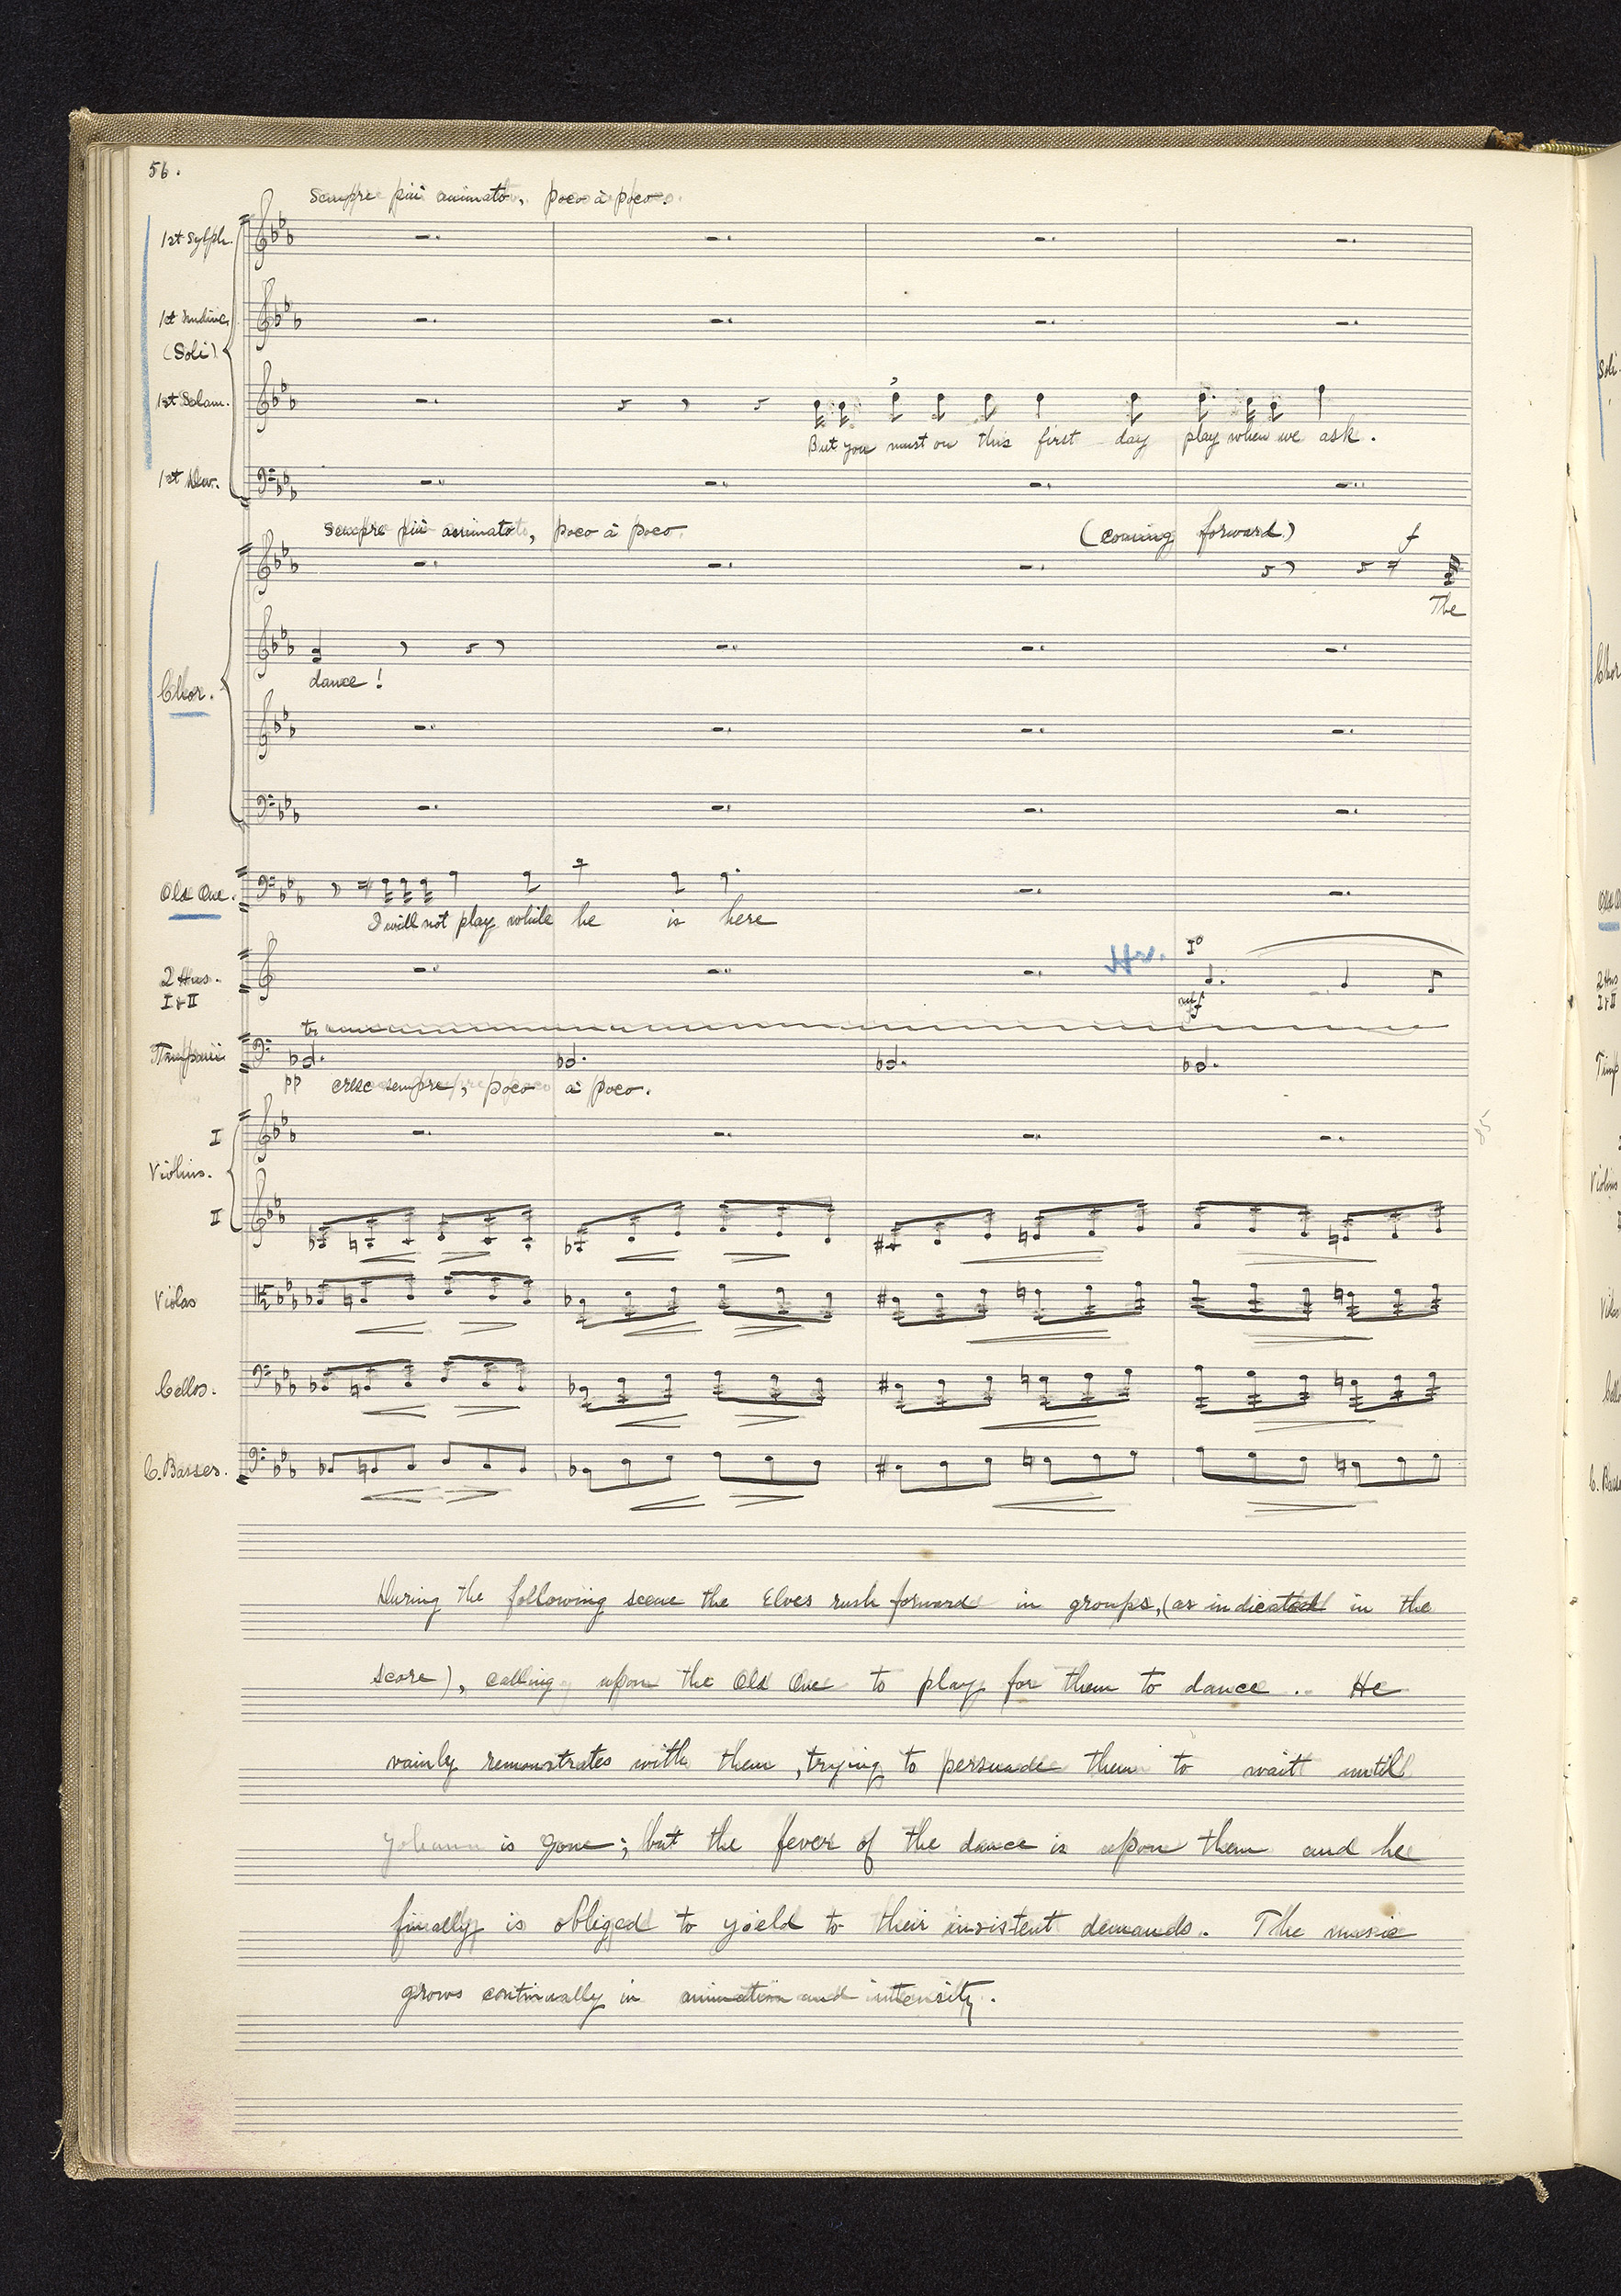 56.
Sempre più animato, poco à poco.
1st Sylph.
1st Undine.
(Soli)
1st Salam.
But you must on this first day play when we ask.
1st Dw.
Sempre più animato, poco à poco.
(coming forward)
f
The
dance!
Chor.
Old One.
I will not play while he is here
2 Hns.
I & II
Hr.
Iº
mf
tr
Timpani
pp cresc sempre, poco à poco.
I
Violins.
II
85
Violas
Cellos.
C. Basses.
During the following scene the Elves rush forward in groups, (as indicated in the
score), calling upon the Old One to play for them to dance. He
vainly remonstrates with them, trying to persuade them to wait until
Johann is gone; but the fever of the dance is upon them and he
finally is obliged to yield to their insistent demands. The music
grows continually in animation and intensity.
Soli.
Chor
2 Hns
I & II
Timp
Violins
C. Bass